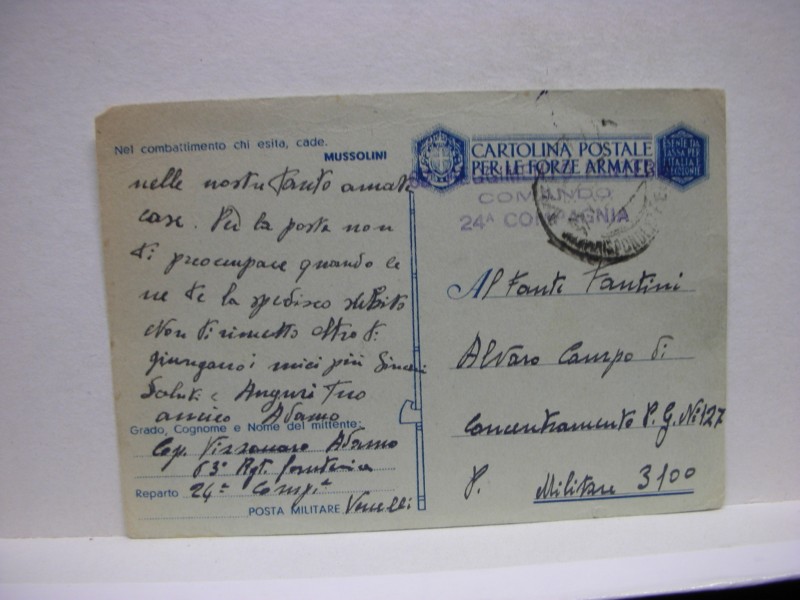 Nel combattimento chi esita, cade.
MUSSOLINI
nelle nostre tanto amate
case. Per la posta non
ti preoccupare quando ce
ne è te la spedisco subito
Non ti rimetto altro ti
giungano i miei più sinceri
Saluti e Auguri Tuo
amico Adamo
Grado, Cognome e Nome del mittente:
Cap. Adamo
63° Rgt. fanteria
Reparto 24ª Comp.ª
POSTA MILITARE Vercelli
CARTOLINA POSTALE
PER LE FORZE ARMATE
COMANDO
24ª COMPAGNIA
Al Fante Fantini
Alvaro Campo di
Concentramento P. G. N° 127
P. Militare 3100